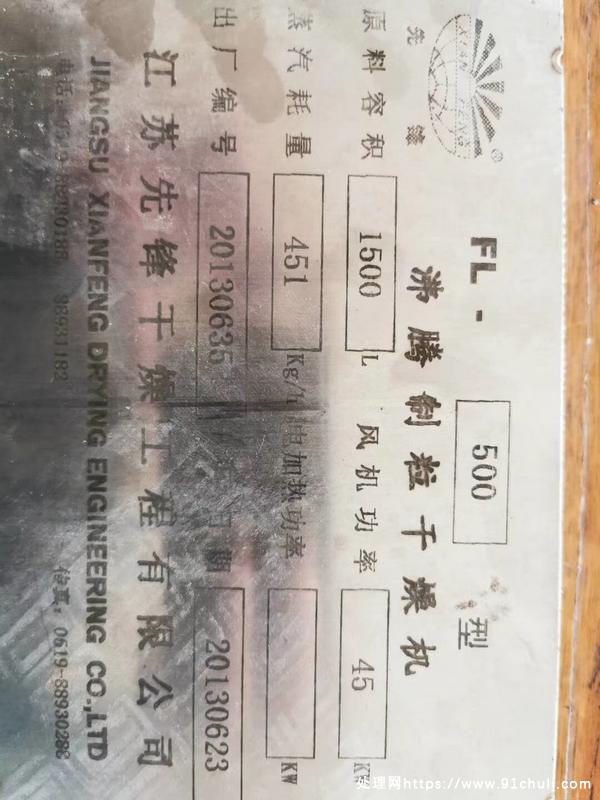 先锋
XIAN FENG
®
FL- 500 型
沸腾制粒干燥机
原料容积 1500 L 风机功率 45 KW
蒸汽耗量 451 Kg/h 电加热功率 KW
出厂编号 20130635 日期 20130623
江苏先锋干燥工程有限公司
JIANGSU XIANFENG DRYING ENGINEERING CO.,LTD
电话: 88931182 传真: 0519-88930283
处理网https://www.91chuli.com